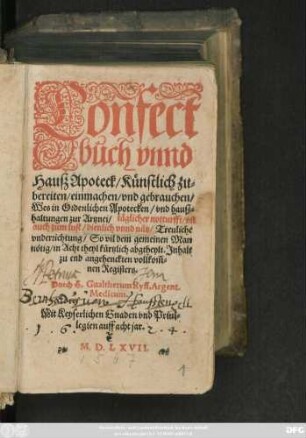 Confect
buch vnnd
Hauß Apoteck / Künstlich zu-
bereiten / einmachen / vnd gebrauchen /
Wes in Ordenlichen Apotecken / vnd hauß-
haltungen zur Artznei / täglicher notturfft / vñ
auch zum lust / dienlich vnnd nütz / Treuliche
vnderrichtung / So vil dem gemeinen Man
nötig / in Acht theyl kürtzlich abgetheylt. Inhalt
zu end angehenckten vollkom̃-
nen Registers.
Durch G. Gualtherum Ryff, Argent.
Medicum.
Mit Keyserlichen Gnaden vnd Priui-
legien auff acht jar.
1 6 2 4.
M. D. LXVII.
1567
1